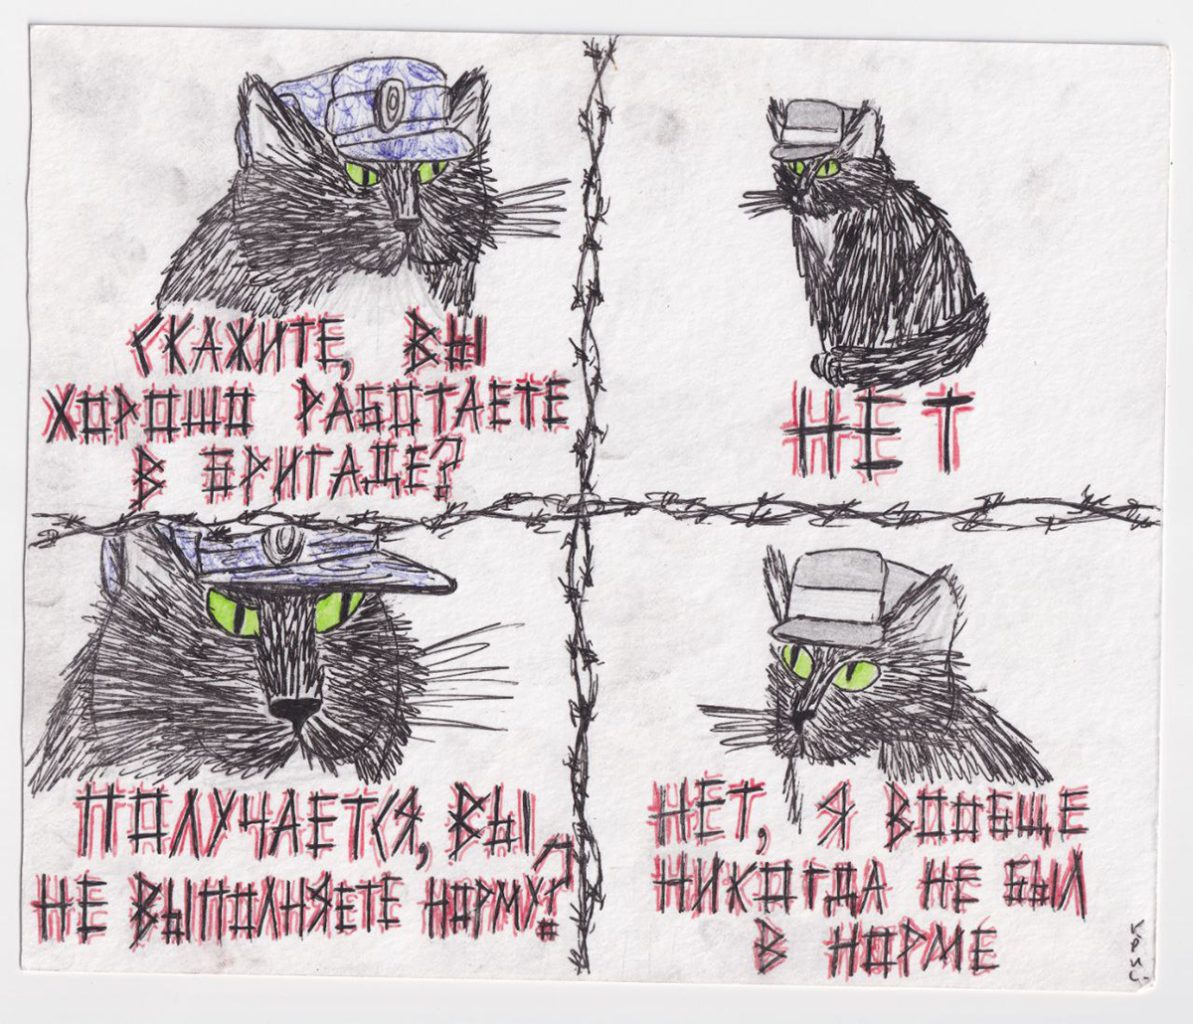 СКАЖИТЕ, ВЫ
ХОРОШО РАБОТАЕТЕ
В БРИГАДЕ?
НЕТ
ПОЛУЧАЕТСЯ, ВЫ
НЕ ВЫПОЛНЯЕТЕ НОРМУ?
НЕТ, Я ВООБЩЕ
НИКОГДА НЕ БЫЛ
В НОРМЕ
КРИС